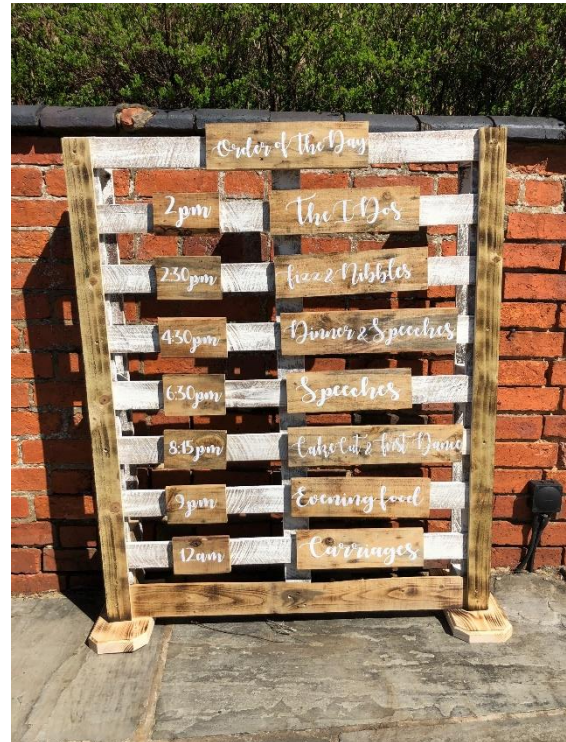 Order of the Day
2pm The I Dos
2:30pm fizz & Nibbles
4:30pm Dinner & Speeches
6:30pm Speeches
8:15pm Cake Cut & first Dance
9pm Evening food
12am Carriages